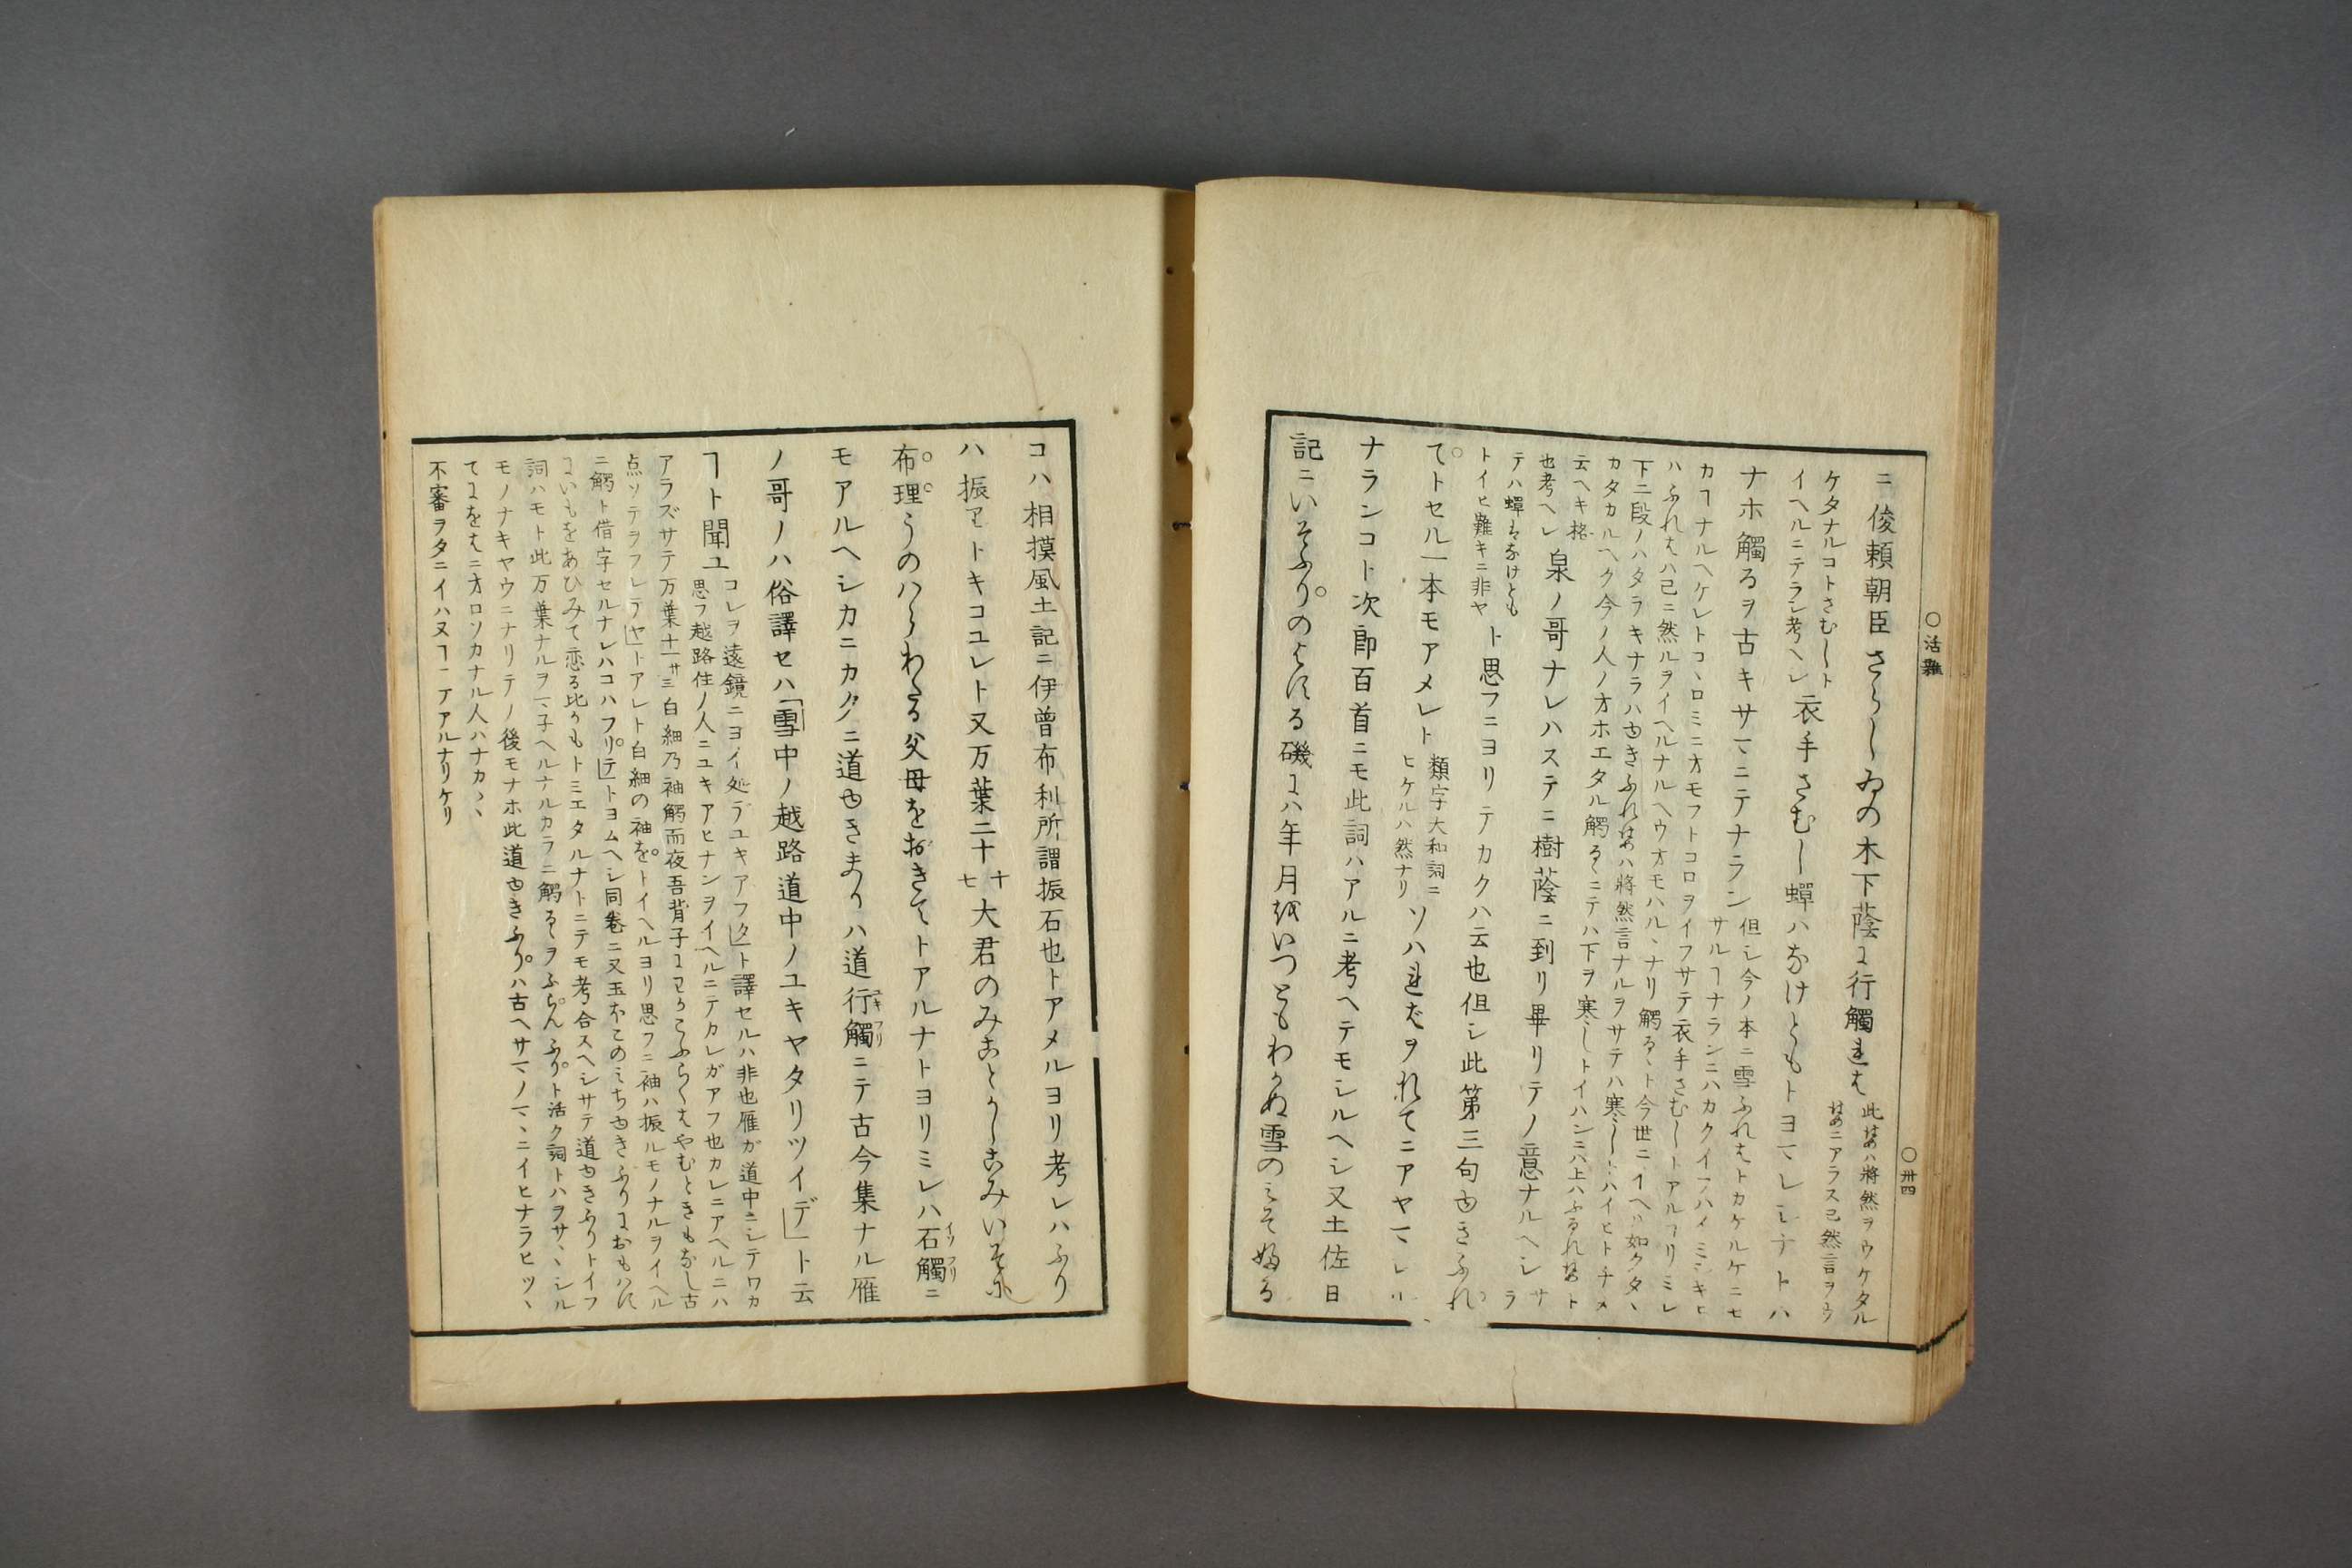 ○活難
○卅四
ニ俊頼朝臣さらしゐの木下蔭に行觸れは
此はハ將然ヲウケタル
はニアラス已然言ヲウ
ケタナルコトさむしト
イヘルニテラシ考ヘレ
衣手さむし蟬ハなけともトヨマレシナトハ
ナホ觸るヲ古キサマニテナラン
但シ今ノ本ニ雪ふれはトカケルケニモ
サルヿナランニハカクイフハイミシキヒ
カヿナルヘケレトコヽロミニオモフトコロヲイフサテ衣手さむしトアルヿリミレ
ハふれはハ已ニ然ルヲイヘルナルヘウオモハルヽナリ觸るヽト今世ニイヘル如クタヽ
下二段ノハタラキナラハゆきふれはハ將然言ナルヲサテハ寒しトハイヒトチメ
カタカルヘク今ノ人ノオホエタル觸るヽニテハ下ヲ寒しトイハンニハ上ハふるれはト
云ヘキ格
也考ヘレ
泉ノ哥ナレハステニ樹蔭ニ到リ畢リテノ意ナルヘシ
サ
ラ
テハ蟬はなけとも
トイヒ難キニ非ヤ
ト思フニヨリテカクハ云也但シ此第三句ゆきふれ
てトセル一本モアメレト
類字大和詞ニ
ヒケルハ然ナリ
ソハれはヲれてニアヤマレル
ナランコト次郎百首ニモ此詞ハアルニ考ヘテモシルヘシ又土佐日
記ニいそふりのよする磯にハ年月をいつともわかぬ雪のミそ婦る
コハ相摸風土記ニ伊曾布利所謂振石也トアメルヨリ考レハふり
ハ振リトキコユレト又万葉二十
十
七
大君のみことかしこみいそに
布理うのハらわたる父母をおきてトアルナトヨリミレハ石觸ニ
イソフリ
モアルヘシカニカクニ道ゆきまりハ道行觸ニテ古今集ナル雁
ユキフリ
ノ哥ノハ俗譯セハ「雪中ノ越路道中ノユキヤタリツイデ」ト云
ヿト聞ユ
コレヲ遠鏡ニヨイ処デユキアフタト譯セルハ非也雁が道中ニシテワカ
思フ越路住ノ人ニユキアヒナンヲイヘルニテカレガアフ也カレニアヘルニハ
アラズサテ万葉十一廿三白細乃袖觸而夜吾背子にわかこふらくはやむときもなし古
点ソテヲフレテヤトアレト白細の袖をトイヘルヨリ思フニ袖ハ振ルモノナルヲイヘル
ニ觸ト借字セルナレハコハフリテトヨムヘシ同卷ニ又玉ほこのミちゆきふりにおもハす
にいもをあひみて恋る比かもトミエタルナトニテモ考合スヘシサテ道ゆきふりトイフ
詞ハモト此万葉ナルヲマヽ子ヘルナルカラニ觸るヲふらんふりト活ク詞トハヲサヽシル
モノナキヤウニナリテノ後モナホ此道ゆきふりハ古ヘサマノマヽニイヒナラヒツヽ
てにをはニオロソカナル人ハナカヽ
不審ヲタニイハヌヿーアアルナリケリ